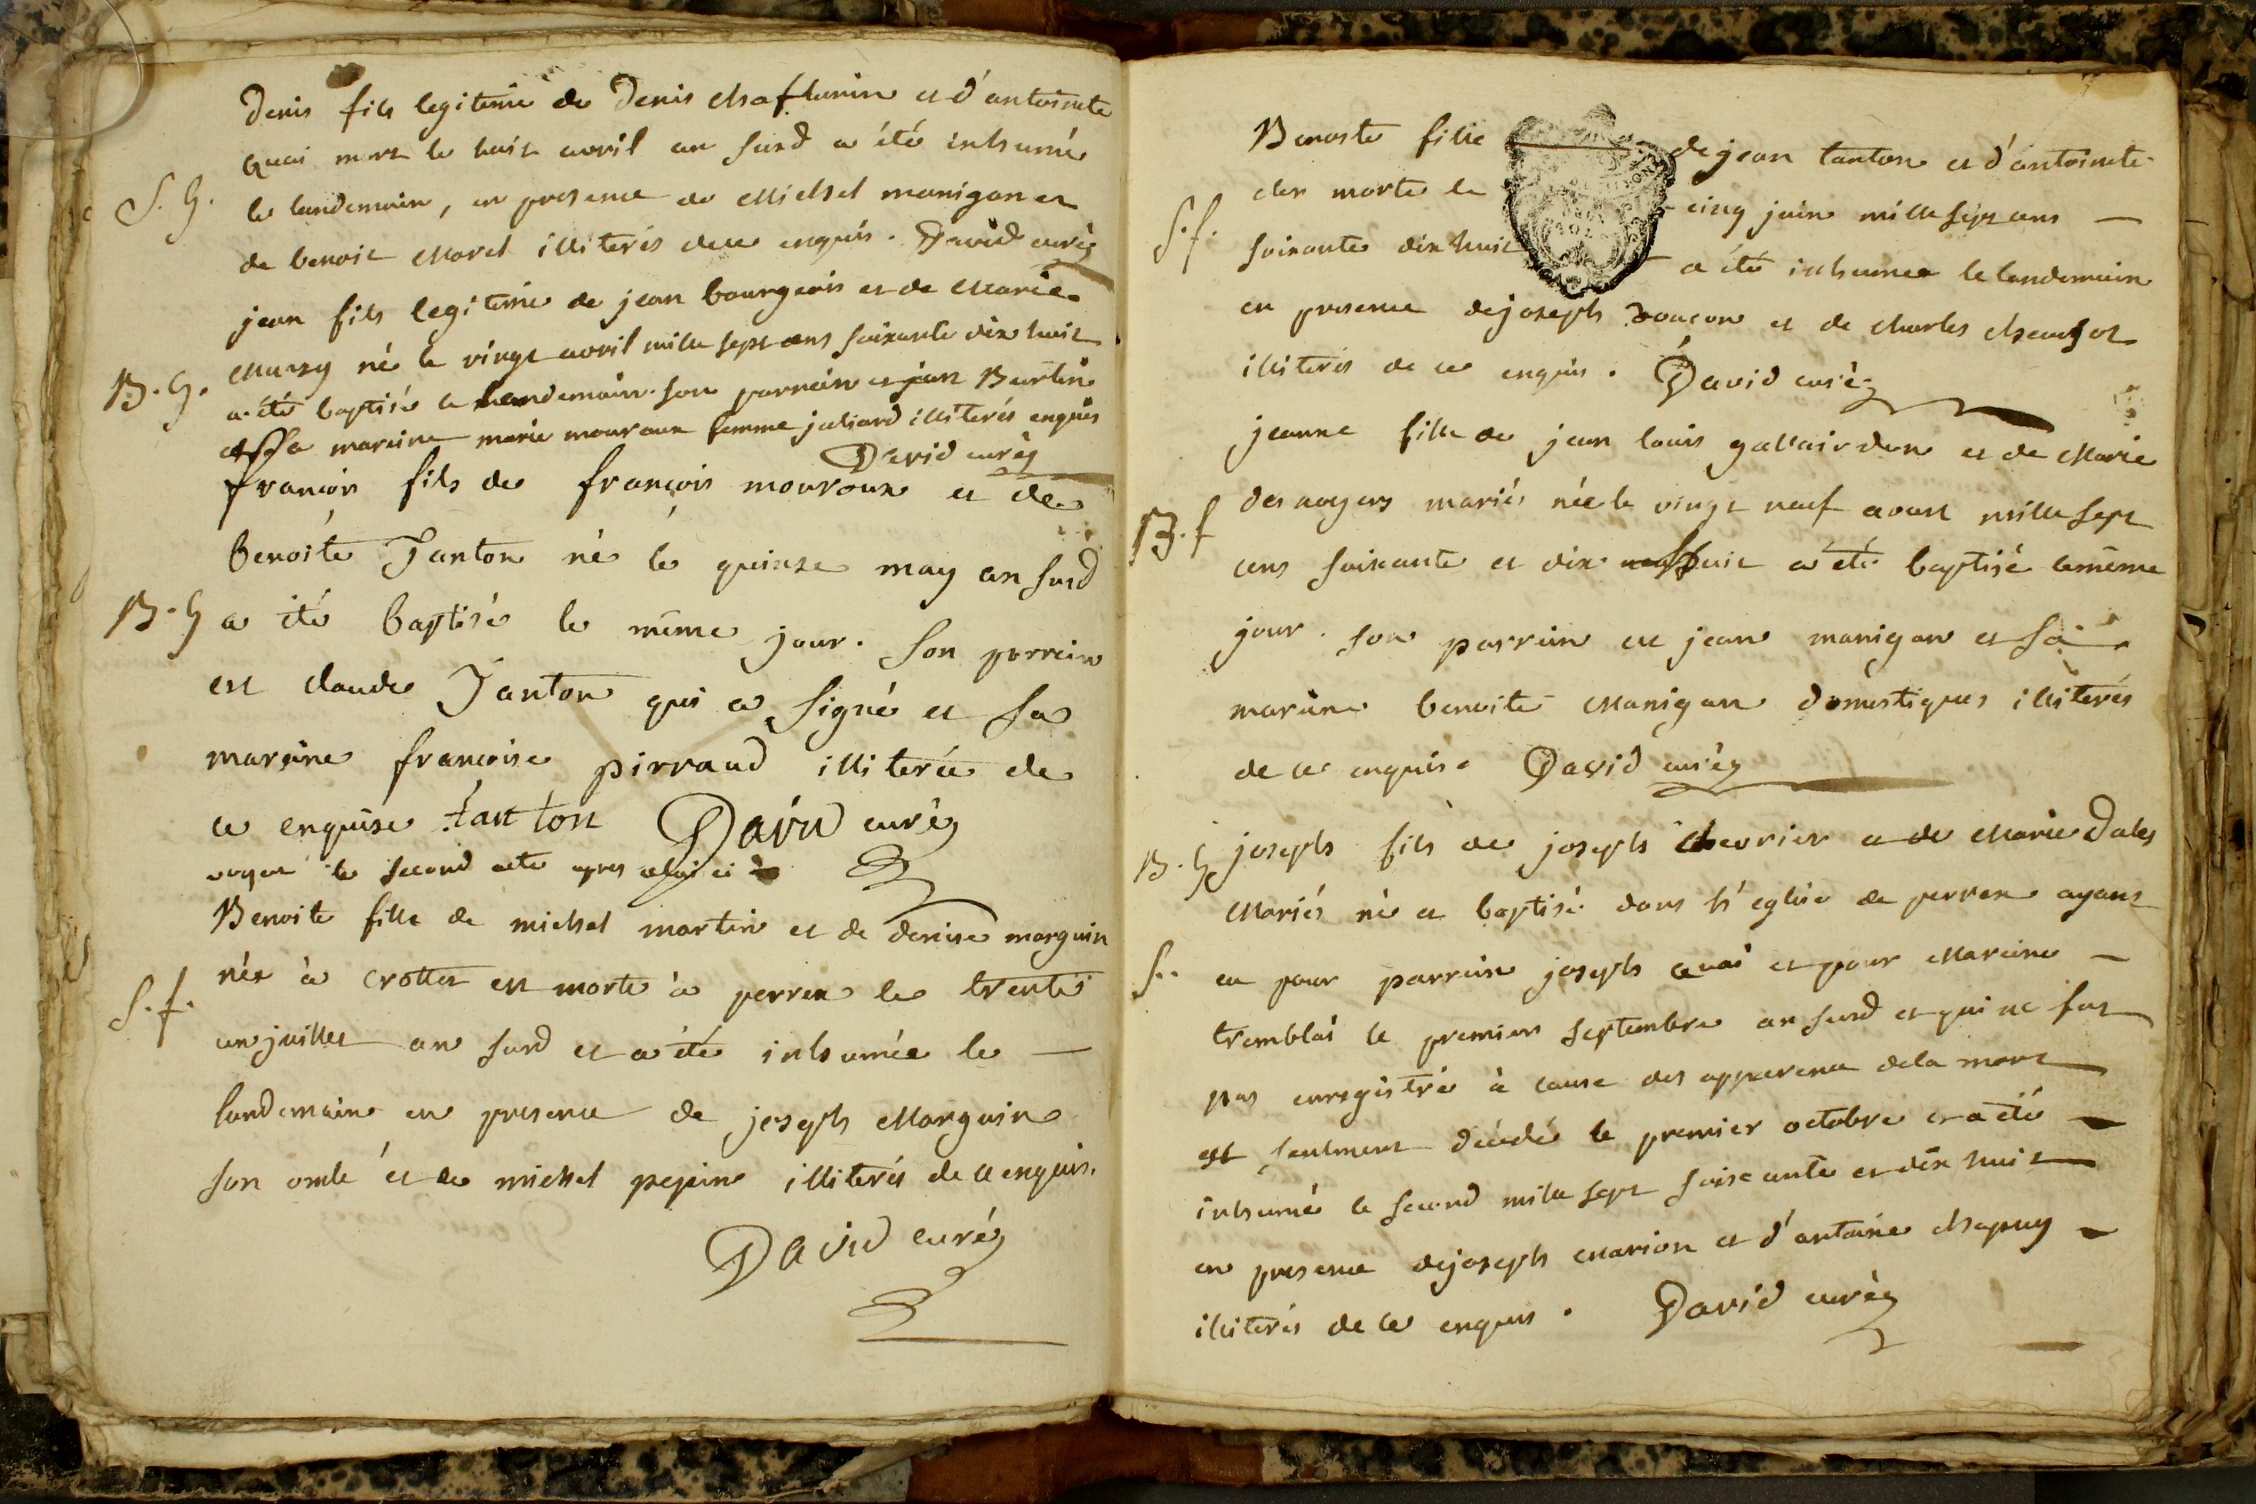 Denis fils legitime de Denis et d'antoinete
quai mort le huit avril an susd a été inhumé
S. G. le landemain, en presence de Michel manigan et
de benoit Morel illiterés de ce enquis. David curé
jean fils legitime de jean bourgeois et de Marie
né le vingt avril mille sept cens soixante dix huit
B. G. a été baptisé le landemain. son parrein est jean Burtin
et sa mareine marie mouroux femme juliard illiterés enquis
David curé
françois fils de françois mouroux et de
benoite Tanton né le quinze may an susd
B. G a été baptisé le même jour. son parrein
est claude Tanton qui a signé et sa
mareine françoise pirraud illiterée de
ce enquise tanton David curé
voyez le second acte apres celui ci
Benoite fille de michel martin et de denise marguin
née à crottet est morte à perrex le trente
S. f. un juillet an susd et a été inhumée le —
landemain en presence de joseph Marguin
son oncle et de michel pepin illiterés de ce enquis.
David curé
Benoite fille de jean tanton et d'antoinete
morte le cinq juin mille sept cens —
S. f. soixante dix huit a été inhumée le landemain
en presence de joseph et de charles
illiterés de ce enquis. David curé
jeanne fille de jean louis gallairdon et de Marie
des noyers mariés née le vingt neuf aoust mille sept
B. f cens soixante et dix huit a été baptisé le même
jour. son parrein est jean manigan et sa
mareine benoite Manigan domestiques illiterés
de ce enquis. David curé
B. G joseph fils de joseph chevrier et de Marie Dales
Mariés né et baptisé dans l'eglise de perrex ayant
S. eu pour parrein joseph quai et pour Mareine —
tremblai le premier septembre an susd et qui ne fut
pas enregistré à cause des apparence de la mort
est seulment decedé le premier octobre et a été
inhumé le second mille sept soixante et dix huit
en presence de joseph Marion et d'antoine chapuy
illiterés de ce enquis. David curé